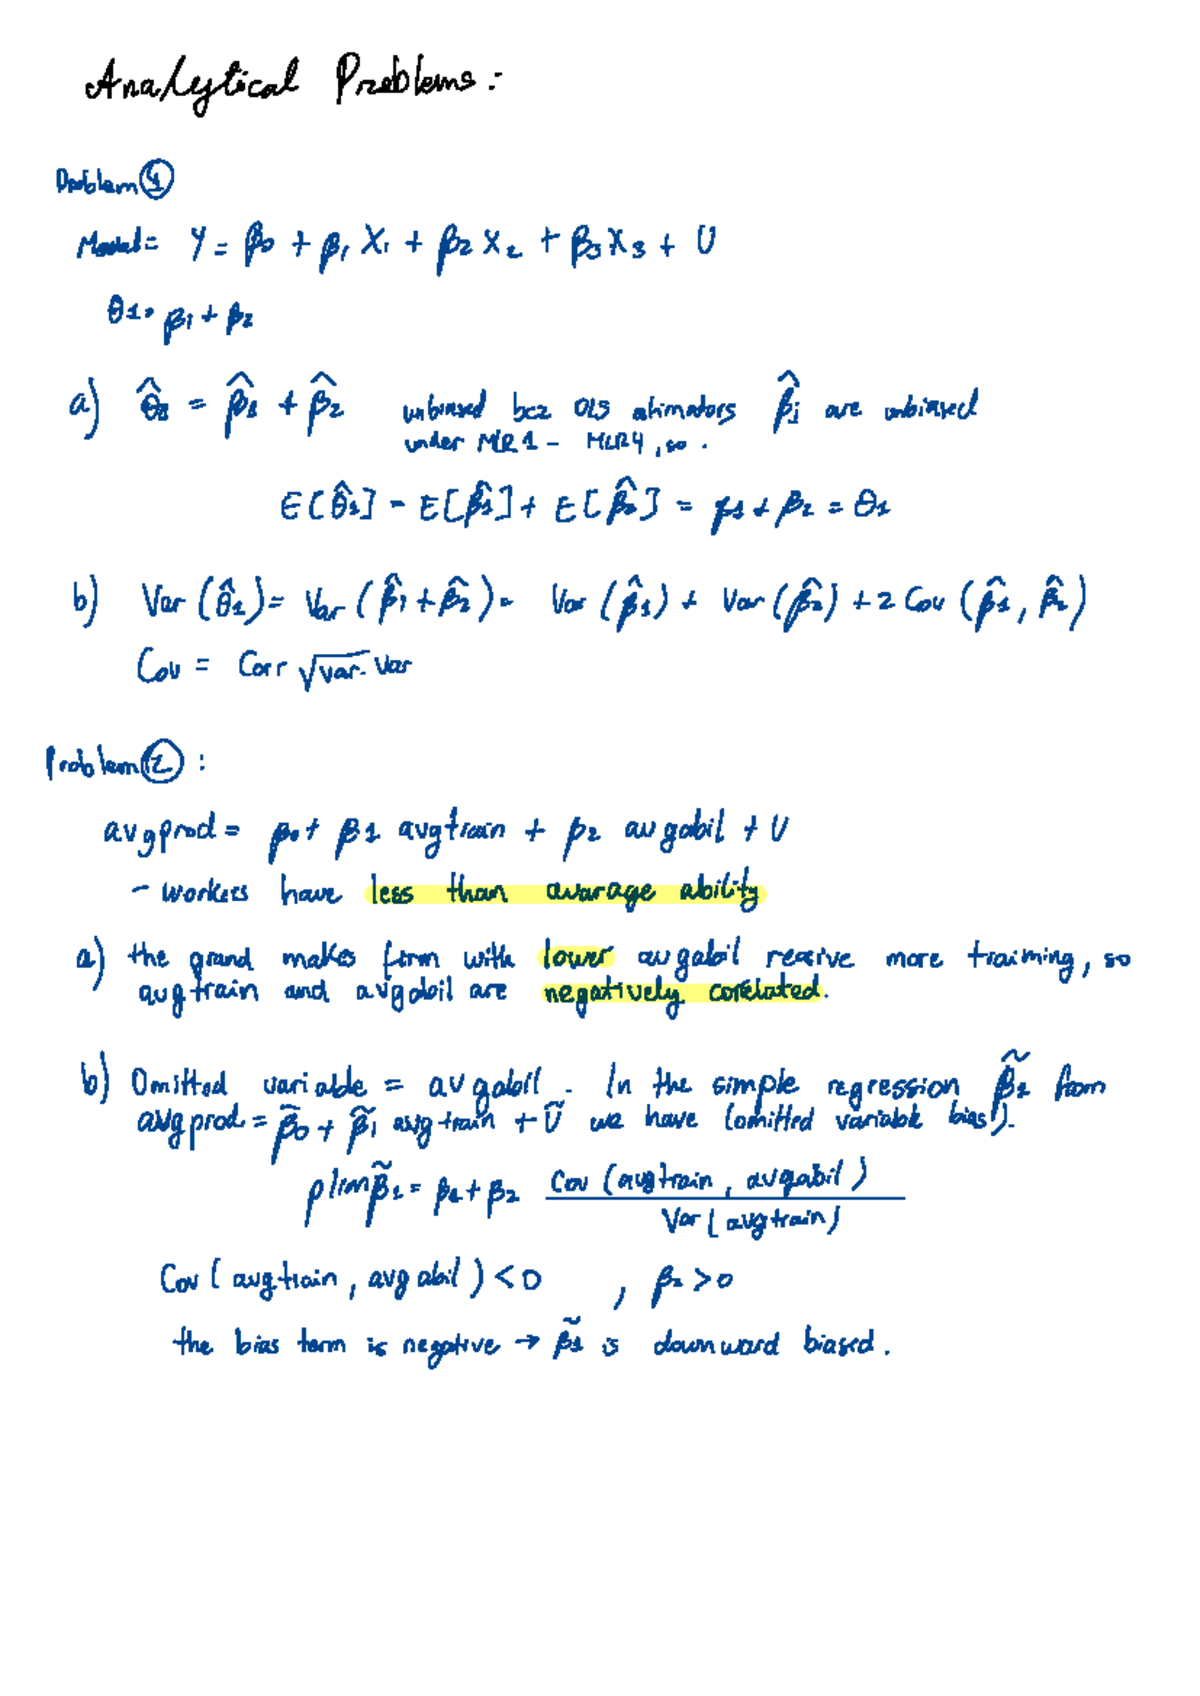 Analytical Problems:
Problem ①
Model = Y = β₀ + β₁ X₁ + β₂ X₂ + β₃ X₃ + U
θ1 = β₁ + β₂
a) θ̂₁ = β̂₁ + β̂₂ unbiased bcz OLS estimators β̂j are unbiased
under MLR1 - MLR4, so.
E[θ̂₁] = E[β̂₁] + E[β̂₂] = β₁ + β₂ = θ₁
b) Var (θ̂₁) = Var (β̂₁ + β̂₂) = Var (β̂₁) + Var (β̂₂) + 2 Cov (β̂₁, β̂₂)
Cov = Corr √var. var
Problem ② :
avgprod = β₀ + β1 avgtrain + β₂ avgabil + U
- workers have less than avarage ability
a) the grand makes firm with lower avgabil receive more training, so
avgtrain and avgabil are negatively corelated.
b) Omitted variable = avgabil. In the simple regression β̃₁ from
avgprod = β̃₀ + β̃₁ avgtrain + Ũ we have (omitted variable bias!).
plim β̃₁ = β₁ + β₂ Cov (avgtrain, avgabil)
Var (avgtrain)
Cov (avgtrain, avgabil) < 0 , β₂ > 0
the bias term is negative → β̃₁ is downward biased.